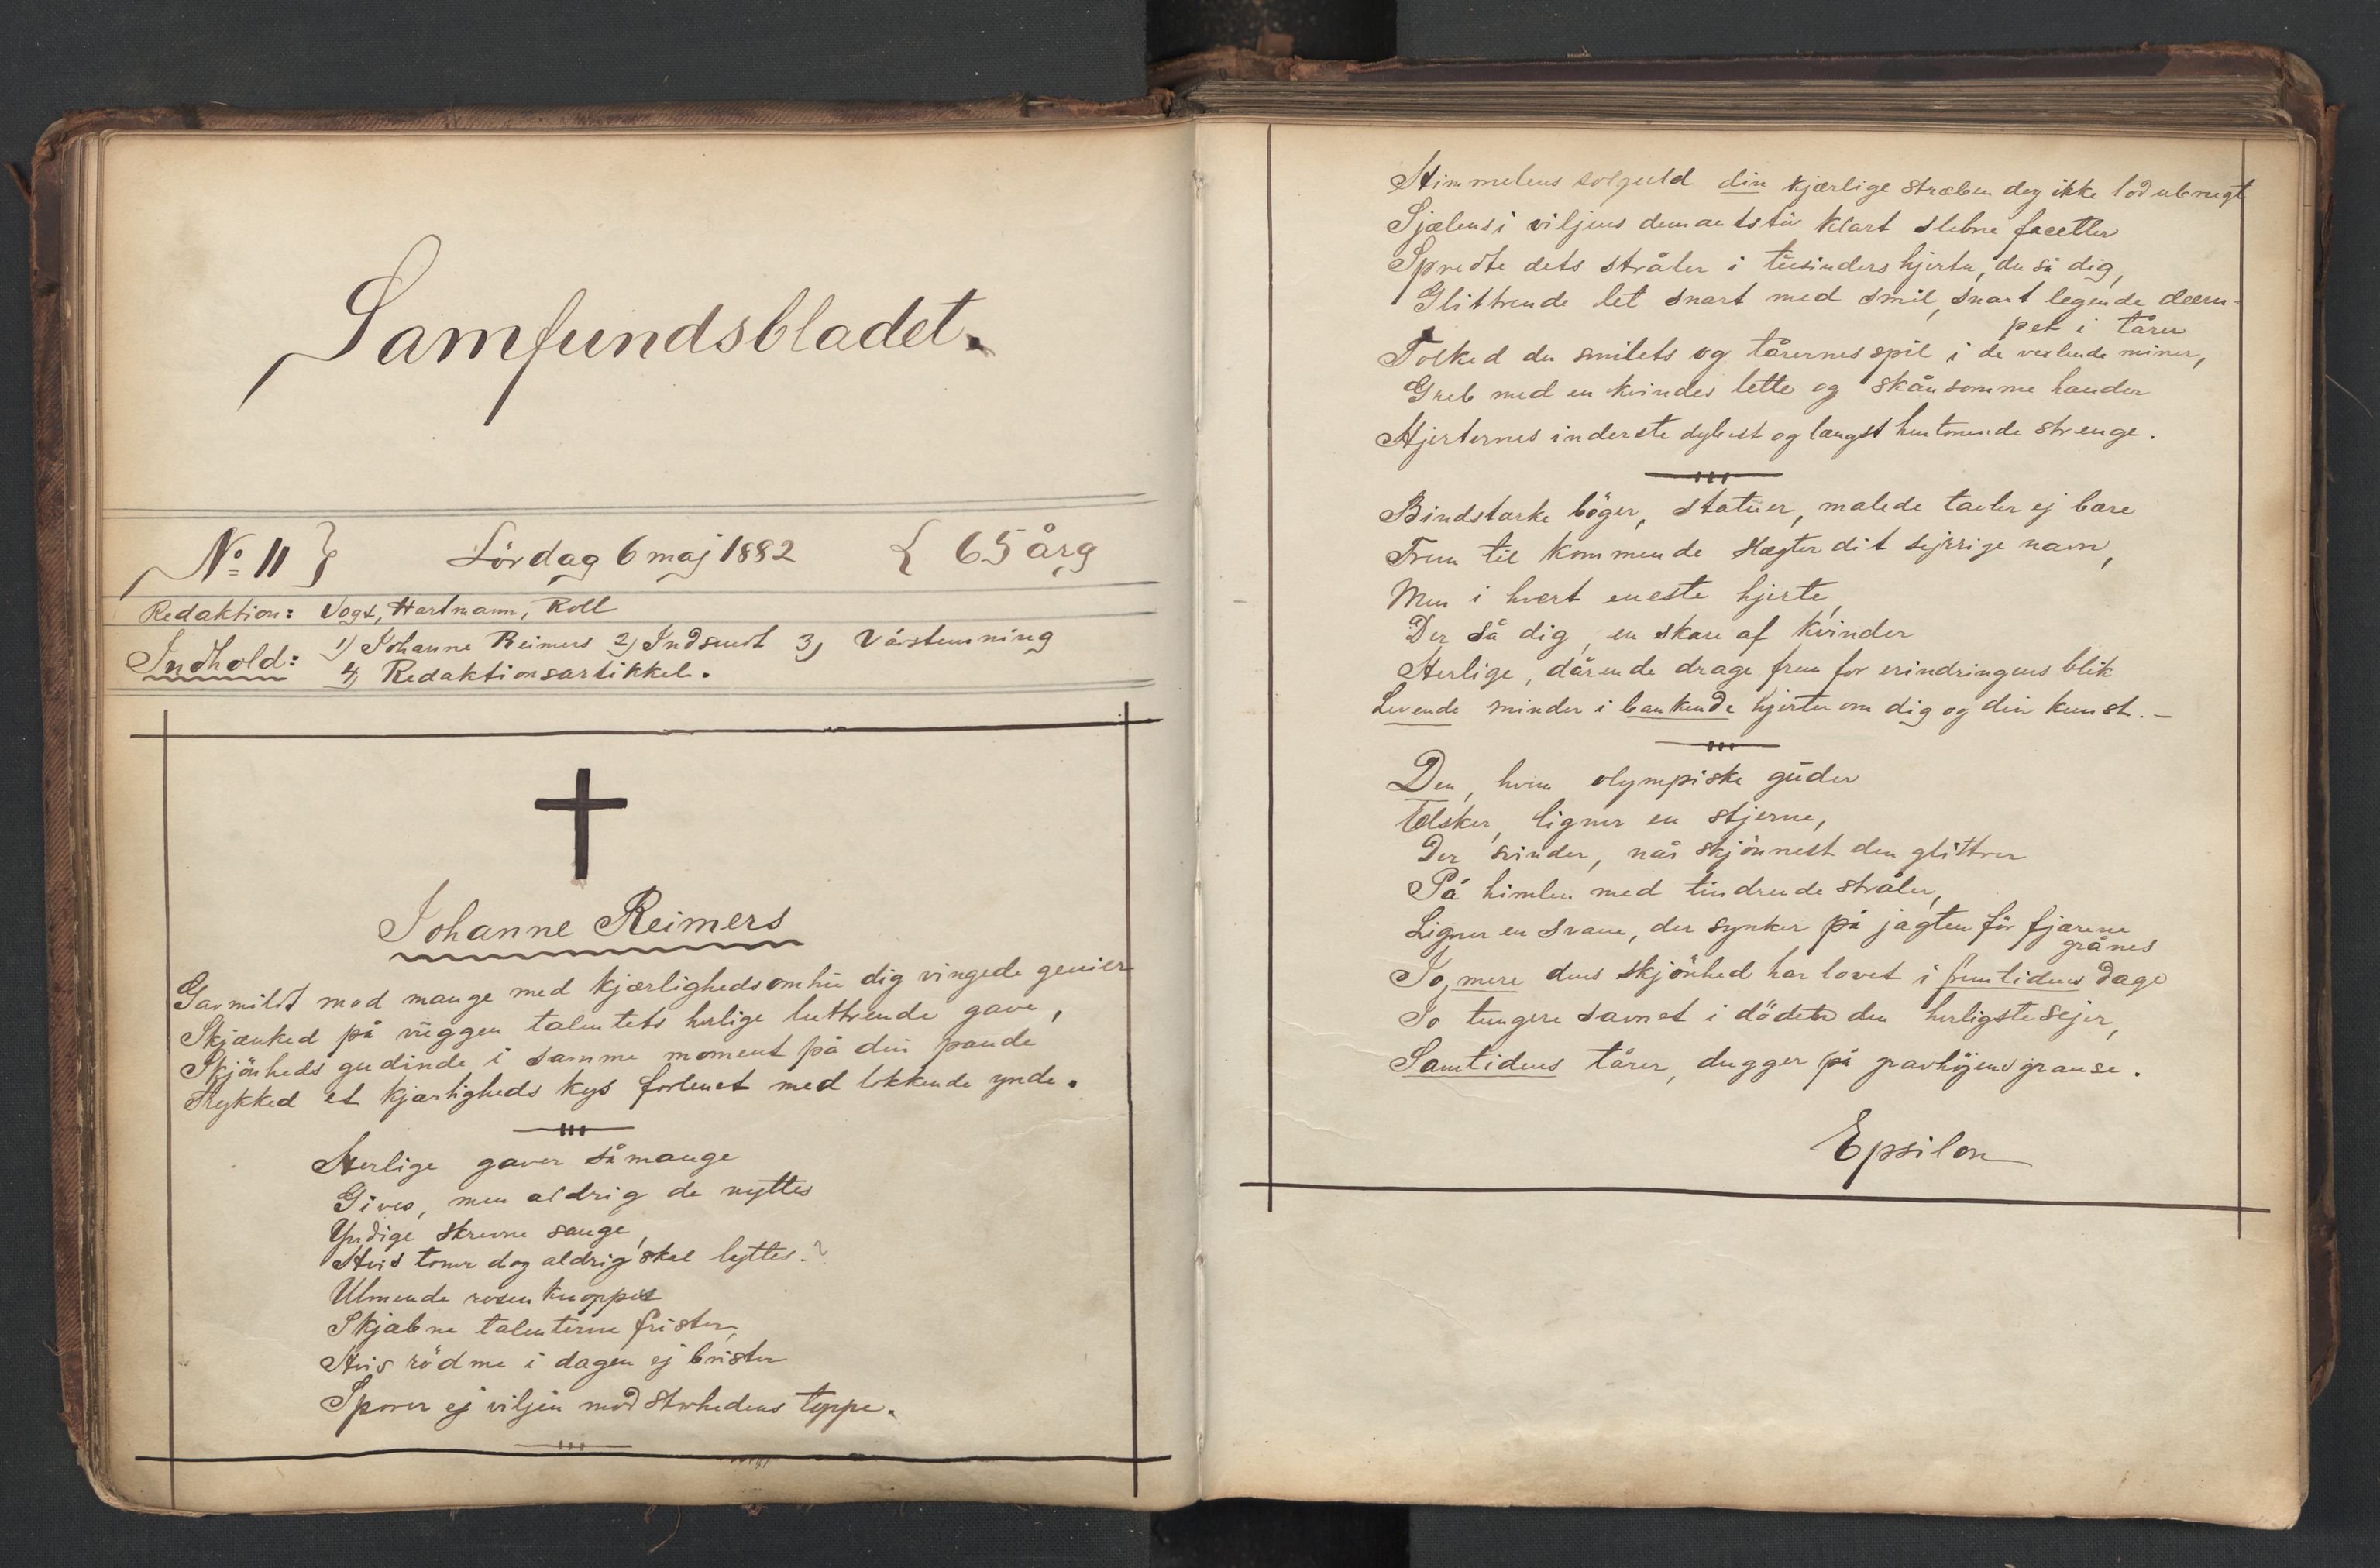 Samfundsbladet.
No 11 } Lördag 6 maj 1882 { 65 årg
Redaktion: Vogt, Hartmann, Roll
Indhold: 1) Johanne Reimers 2) Indsendt 3) Vårstemning
4) Redaktionsartikkel.
Johanne Reimers
Gavmildt mod mange med kjærlighedsomhu dig vingede genier
Skjænked på vuggen talentets herlige luttrende gave,
Skjönheds gudinde i samme moment på din pande
Trykked et kjærligheds kys forlenet med lokkende ynde.
Herlige gaver så mange
Gives, men aldrig de nyttes
Yndige skrevne sange,
Hvis toner dog aldrig skal lyttes.
Ulmende rosenknopper
Skjæbne talenterne frister,
Hvis rödme i dagen ej brister
Sporer ej viljen mod storhedens toppe.
Himmelens solguld din kjærlige stræben dog ikke lod ubrugt
Sjælens i viljens demantstöv klart slebne facetter
Spredte dets stråler i tusinders hjerter, du så dig,
Glittrende let snart med smil, snart legende dæm-
pet i tårer
Tolked du smilets og tårernes spil i de vexlende miner,
Greb med en kvindes lette og skånsomme hænder
Hjerternes inderste dybest og længst hentonende strenge.
Bindstærke böger, statuer, malede tavler ej bære
Frem til kommende slægter dit sejrrige navn,
Men i hvert eneste hjerte,
Der så dig, en skare af kvinder
Herlige, dårende drage frem for erindringens blik
Levende minder i bankende hjerter om dig og din kunst. –
Den, hvem olympiske guder
Elsker, ligner en stjerne,
Der svinder, når skjönnest den glittrer
På himlen med tindrende stråler,
Ligner en svane, der synker på jagten för fjærene
grånes
Jo, mere dens skjönhed har lovet i fremtidens dage
Jo tungere savnet i döden den herligste sejer,
Samtidens tårer, dugger på gravhöjens
Epsilon